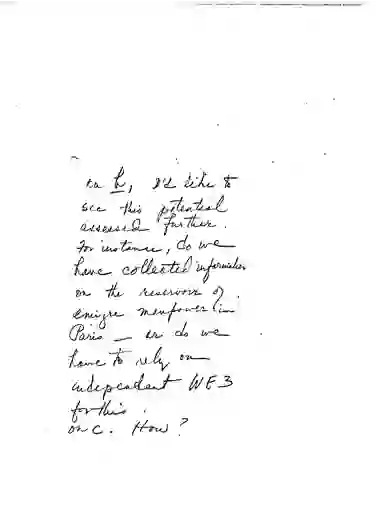 on b, I'd like to
see this potential
assessed further.
For instance, do we
have collected information
on the reservoir of
emigre manpower in
Paris — or do we
have to rely on
independent WE3
for this.
on c. How?